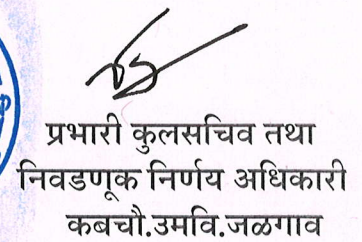 प्रभारी कुलसचिव तथा
निवडणूक निर्णय अधिकारी
कबचौ.उमवि.जळगाव